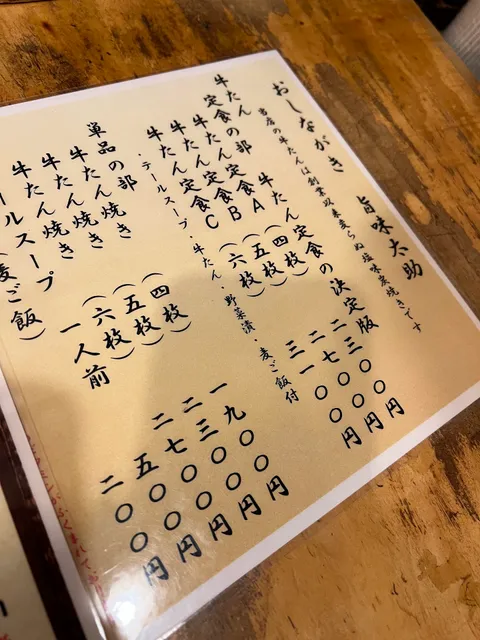 おしながき 旨味太助
当店の牛たんは創業以来変らぬ塩味炭焼きです
牛たん
定食の部 牛たん定食の決定版
牛たん定食A（四枚） 二三〇〇円
牛たん定食B（五枚） 二七〇〇円
牛たん定食C（六枚） 三一〇〇円
・テールスープ・牛たん・野菜漬・麦ご飯付
単品の部
牛たん焼き（四枚） 一九〇〇円
牛たん焼き（五枚） 二三〇〇円
牛たん焼き（六枚） 二七〇〇円
ールスープ 一人前 五〇〇円
麦ご飯） 二〇〇円